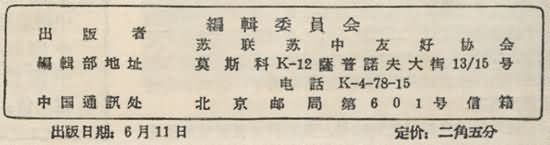 編輯委員会
出版者 苏联苏中友好协会
編輯部地址 莫斯科K-12薩普諾夫大街13/15号
电話 K-4-78-15
中国通訊处 北京邮局第601号信箱
出版日期：6月11日 定价：二角五分